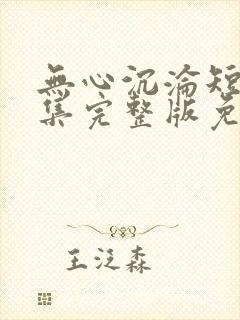 無心沉淪短
集完整版免
王泛森